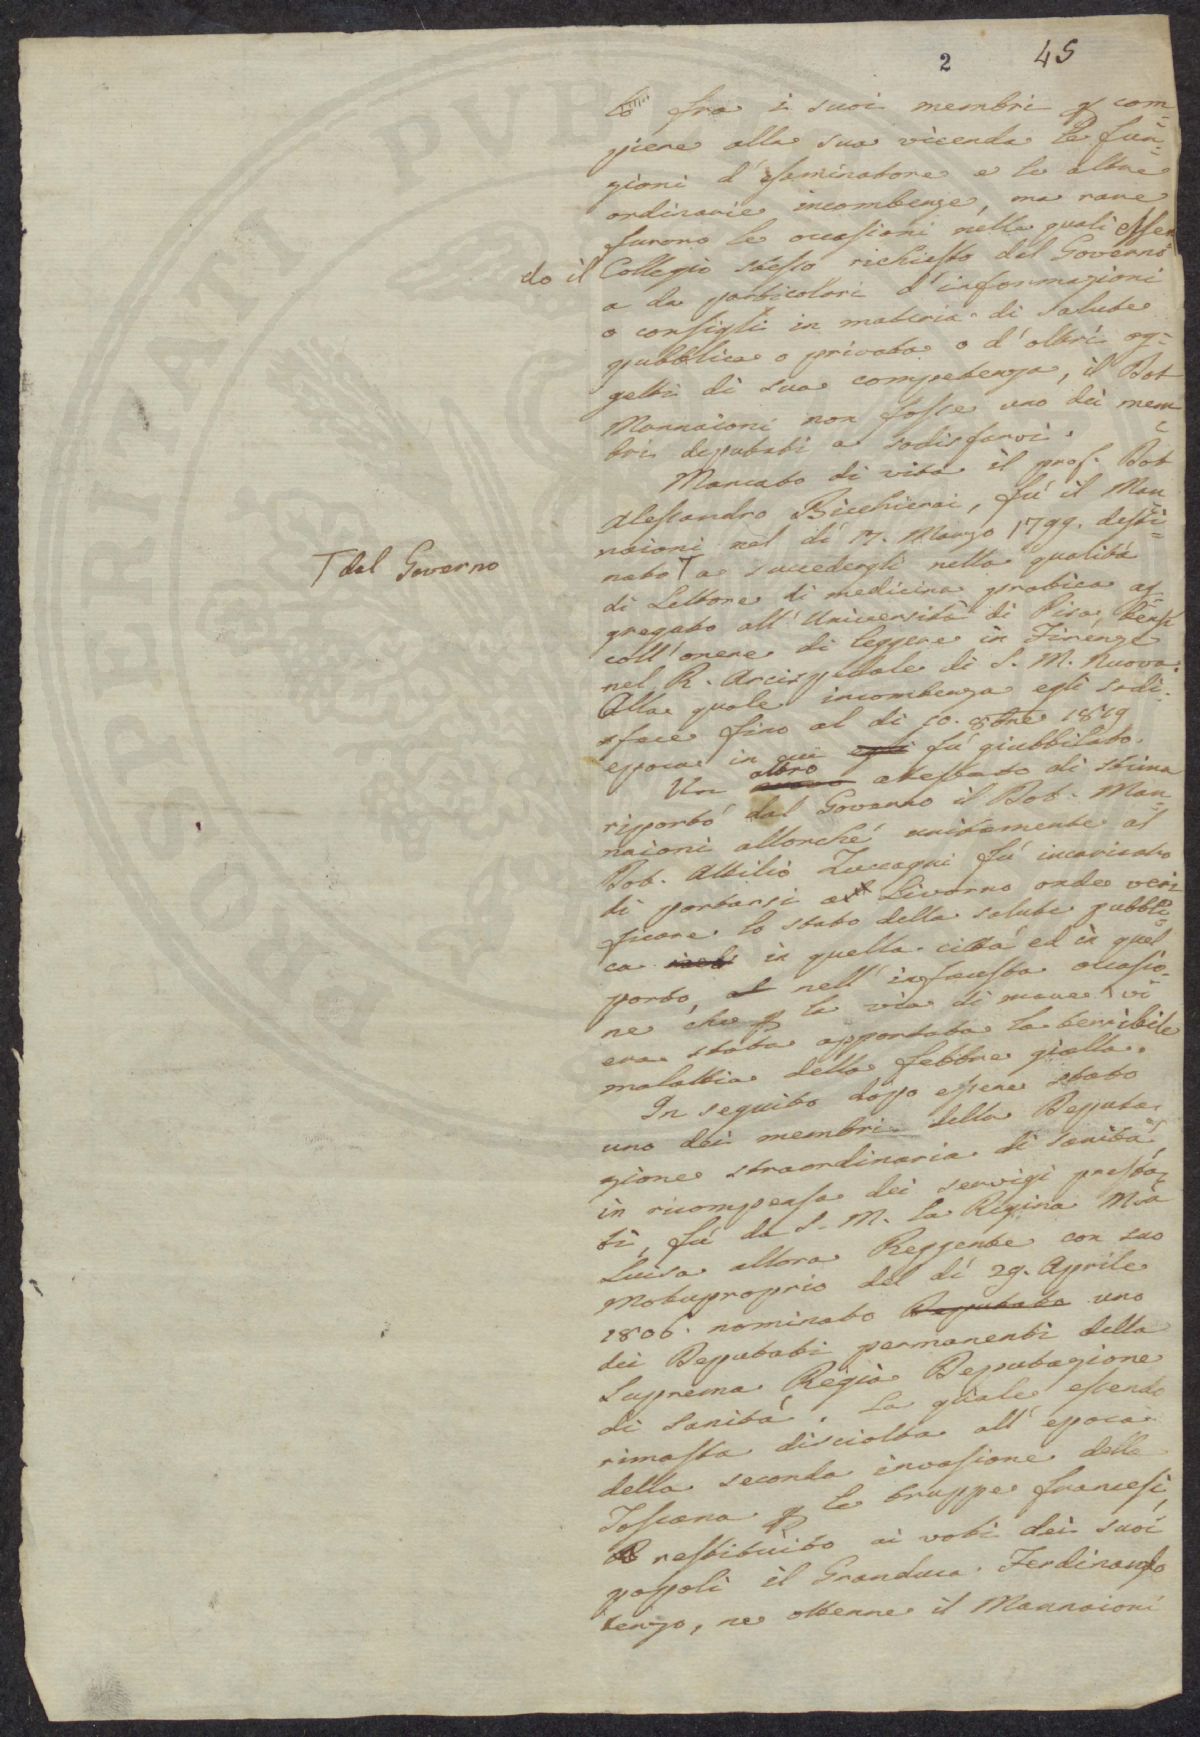 2 45
to fra i suoi membri p com=
piere alla sua vicenda le fun=
zioni d'esaminatore e le altre
ordinarie incombenze, ma rare
furono le occasioni nelle quali essen
do il Collegio stesso richiesto dal Governo
o da particolari d'informazioni
o consigli in materia di salute
pubblica o privata o d'altri og=
getti di sua competenza, il Dot
Mannaioni non fosse uno dei mem=
bri deputati a sodisfarvi.
Mancato di vita il prof. Dot
Alessandro Bicchierai, fu il Man=
naioni nel dì 17. Marzo 1799. desti=
nato T a succedergli nella qualità
T dal Governo
di Lettore di medicina pratica ag=
gregato all'Università di Pisa, però
coll'onere di leggere in Firenze
nel R. Arcispedale di S. M. Nuova.
Alla quale incombenza egli sodi=
sfece fino al dì 10. 8bre 1819
epoca in cui egli fu giubbilato.
Un nuovo altro attestato di stima
riportò dal Governo il Dot. Man=
naioni allorchè unitamente al
Dot. Attilio Zuccagni fu incaricato
di portarsi a Livorno onde veri
ficare lo stato della salute pubbli=
ca in quella città ed in quel
porto, nell'infausta occasio=
ne che p la via di mare vi
era stata apportata la terribile
malattia della febbre gialla.
In seguito dopo essere stato
uno dei membri della Deputa=
zione straordinaria di sanità,
in ricompensa dei servigi presta=
ti, fu da S. M. la Regina Mia
Luisa allora Reggente con suo
Motuproprio del dì 29. Aprile
1806. nominato Deputato uno
dei Deputati permanenti della
Suprema Regia Deputazione
di Sanità. La quale essendo
rimasta disciolta all'epoca
della seconda invasione della
Toscana p le truppe francesi,
restituito ai voti dei suoi
popoli il Granduca Ferdinando
terzo, ne ottenne il Mannaioni